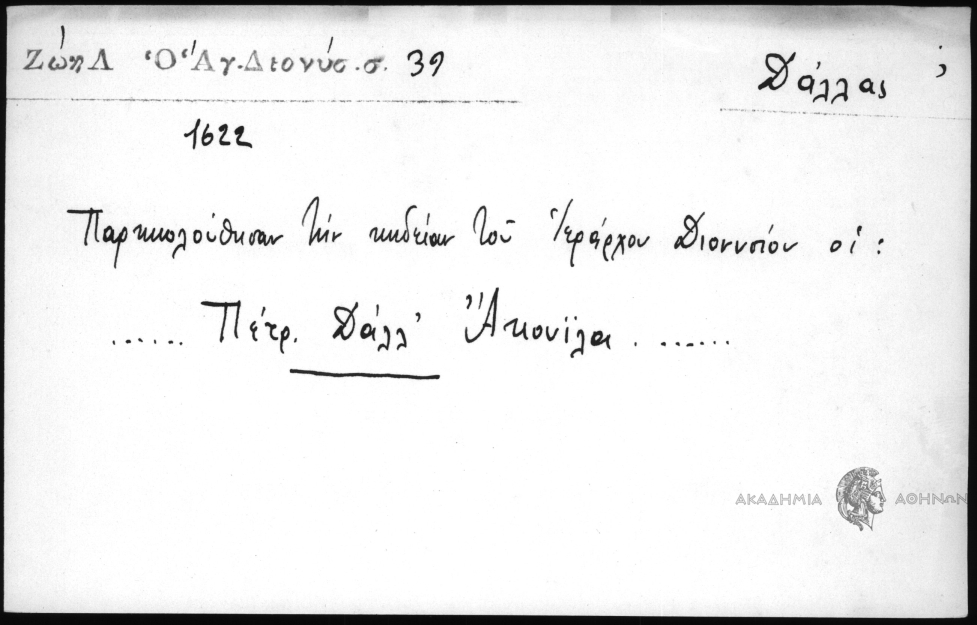 Ζώη Λ Ὁ Ἁγ. Διονύσ. σ. 39
Δάλλας ;
1622
Παρηκολούθησαν τὴν κηδείαν τοῦ Ἱεράρχου Διονυσίου οἱ :
...... Πέτρ. Δάλλ' Ἀκουΐλα . ......
ΑΚΑΔΗΜΙΑ ΑΘΗΝΩΝ